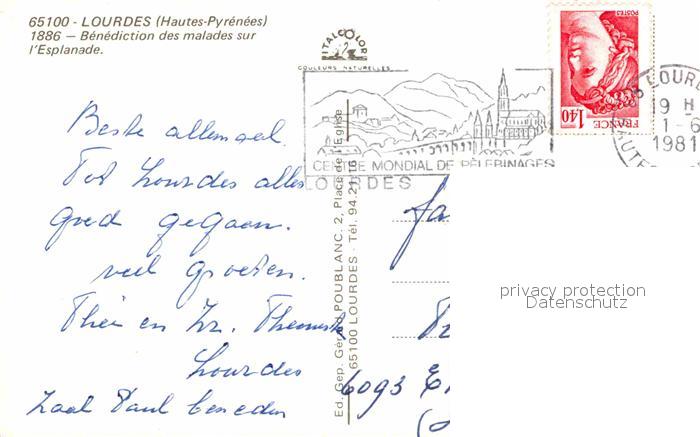 65100 - LOURDES (Hautes-Pyrénées)
1886 — Bénédiction des malades sur
l'Esplanade.
ITALCOLOR
COULEURS NATURELLES
POSTES
1,40 FRANCE
LOURD
19 H
1-6
1981
HAUTES
CENTRE MONDIAL DE PÈLERINAGES
LOURDES
Beste allemaal.
Tot Lourdes alles
goed gegaan.
veel groeten.
Theo en Zr.
Lourdes
Zaal Paul beneden
Ed. Gep. Gérard POUBLANC. 2, Place de l'Eglise
65100 LOURDES - Tél. 94.21.16
fa
6093
privacy protection
Datenschutz